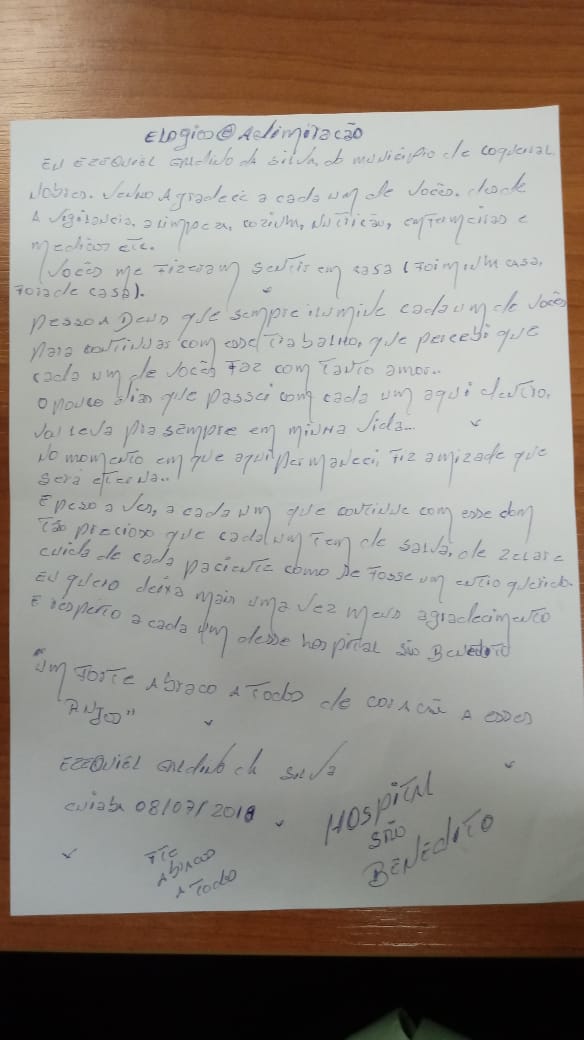 Elogios @ Adimiração
Eu EZEQUIEL GALDINO da Silva, do município de coqueiral
Nobres. Venho Agradece a cada um de vocês. desde
A vigilancia, a limpeza, cozinha, Nutrição, enfermeiras e
medicos etc.
Vocês me fizeram sentir em casa (foi minha casa,
fora de casa).
Pesso a Deus que sempre ilumine cada um de vocês
Para continuar com esse trabalho, que percebi que
cada um de vocês faz com tanto amor..
O pouco dias que passei com cada um aqui dentro,
vou leva pra sempre em minha vida...
No momento em que aqui permaneci, fiz amizade que
sera eterna..
E peso a vcs, a cada um que continue com esse dom
tão precioso que cada um tem de salva, de zelar e
cuida de cada paciente como se fosse um entio querido.
Eu quero deixa mais uma vez meus agradecimento
E respeito a cada um desse hospital são Benedito
Um forte Abraco A todos de coração a esses
"Anjos"
EZEQUIEL GALDINO da Silva
cuiaba 08/07/2018
HOSPITAL
SÃO
BENEDITO
Fte
Abraco
A todos